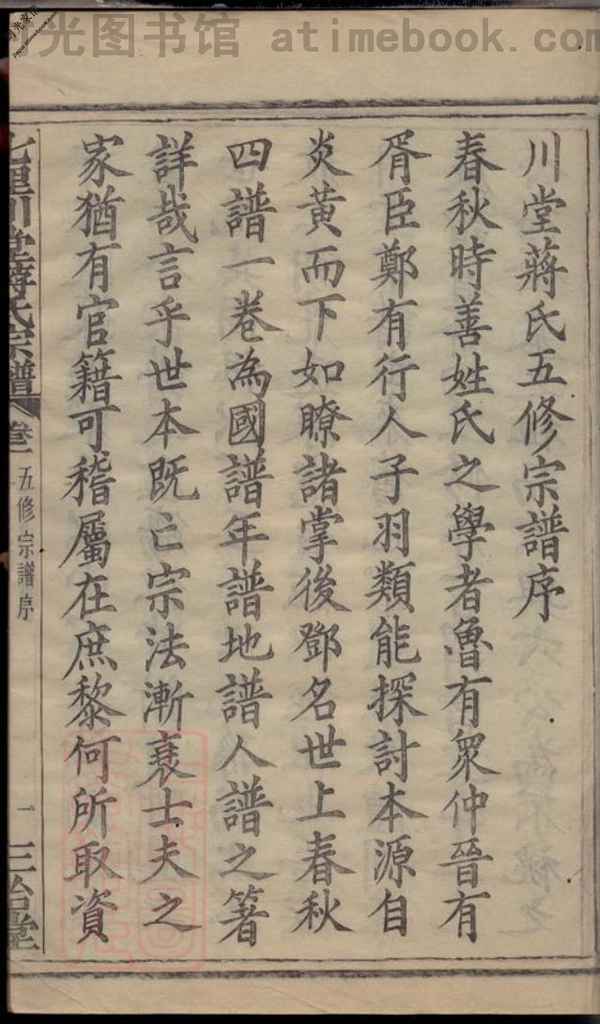 时光图书馆 atimebook.com
川堂蔣氏五修宗譜序
春秋時善姓氏之學者魯有眾仲晉有
胥臣鄭有行人子羽類能探討本源自
炎黃而下如瞭諸掌後鄧名世上春秋
四譜一卷為國譜年譜地譜人譜之箸
詳哉言乎世本既亡宗法漸衰士夫之
家猶有官籍可稽屬在庶黎何所取資
七里川堂蔣氏宗譜
五修宗譜序
一